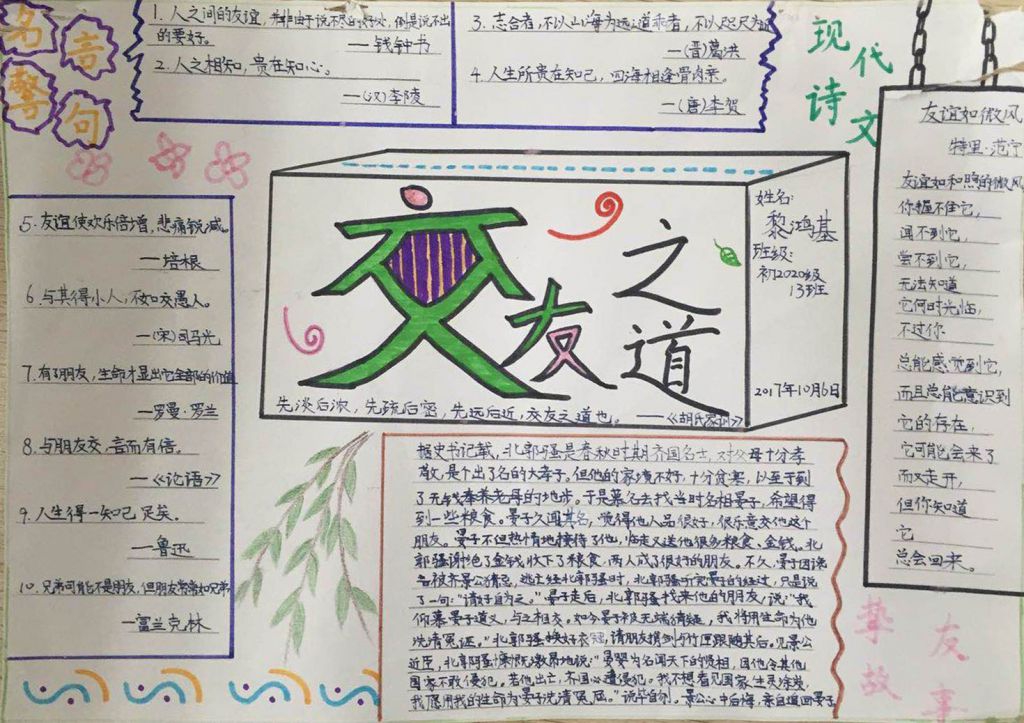 名言警句
1. 人之间的友谊，并非由于说不尽的好处，倒是说不出
的要好。
—钱钟书
2. 人之相知，贵在知心。
—(汉)李陵
3. 志合者，不以山海为远；道乖者，不以咫尺为近
—(晋)葛洪
4. 人生所贵在知己，四海相逢骨肉亲。
—(唐)李贺
现代诗文
友谊如微风
特里·范宁
友谊如和煦的微风
你握不住它，
闻不到它，
尝不到它，
无法知道
它何时光临，
不过你
总能感觉到它，
而且总能意识到
它的存在，
它可能会来了
而又走开，
但你知道
它
总会回来。
5. 友谊使欢乐倍增，悲痛锐减。
—培根
6. 与其得小人，不如交愚人。
—(宋)司马光
7. 有了朋友，生命才显出它全部的价值
—罗曼·罗兰
8. 与朋友交，言而有信。
—《论语》
9. 人生得一知己足矣。
—鲁迅
10. 兄弟可能不是朋友，但朋友常常如兄弟
—富兰克林
交友之道
先淡后浓，先疏后密，先远后近，交友之道也。 —《胡氏家训》
姓名：
黎鸿基
班级：
初2020级
13班
2017年10月6日
据史书记载，北郭骚是春秋时期齐国名士，对父母十分孝
敬，是个出了名的大孝子。但他的家境不好，十分贫寒，以至于到
了无钱奉养老母的地步。于是慕名去找当时名相晏子，希望得
到一些粮食。晏子久闻其名，觉得他人品很好，很乐意交他这个
朋友。晏子不但热情地接待了他，临走又送他很多粮食、金钱。北
郭骚谢绝了金钱，收下了粮食，两人成了很好的朋友。不久，晏子因事
名被齐景公猜忌，逃亡经北郭骚时，北郭骚听完晏子的经过，只是说
了一句："请好自为之。"晏子走后，北郭骚找来他的朋友，说："我
仰慕晏子道义，与之相交。如今晏子被无端猜疑，我将用生命为他
洗清冤证。"北郭骚换好衣冠，请朋友携剑与竹匣跟随其后。见景公
近臣，北郭骚慷慨激昂地说："晏婴为名闻天下的贤相，因他令其他
国家不敢侵犯。若他出亡，齐国必遭侵犯。我不想看见国家生灵涂炭，
我愿用我的生命为晏子洗清冤屈。"说毕自刎。景公心中后悔，亲自追回晏子
挚友故事